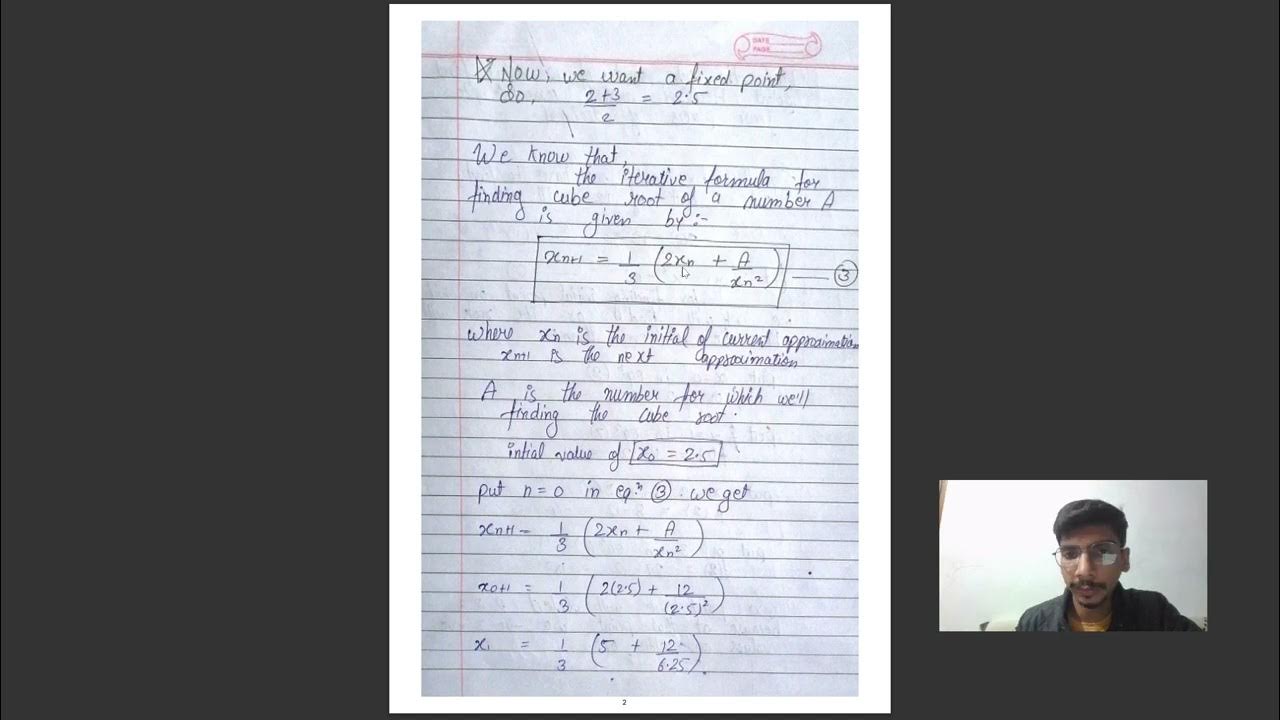 DATE
PAGE
Now, we want a fixed point,
So, 2+3/2 = 2.5
We know that,
the iterative formula for
finding cube root of a number A
is given by :-
xn+1 = 1/3 (2xn + A/xn²) — ③
where xn is the initial of current approximation
xn+1 is the next approximation
A is the number for which we'll
finding the cube root.
intial value of x0 = 2.5
put n=0 in eqn ③ we get
xn+1 = 1/3 (2xn + A/xn²)
x0+1 = 1/3 (2(2.5) + 12/(2.5)²)
x1 = 1/3 (5 + 12/6.25)
2